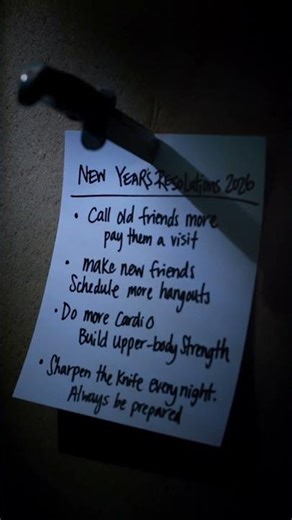 NEW YEAR'S RESOLUTIONS 2026
• Call old friends more
pay them a visit
• make new friends
Schedule more hangouts
• Do more Cardio
Build Upper-body Strength
• Sharpen the Knife Every night.
Always be prepared